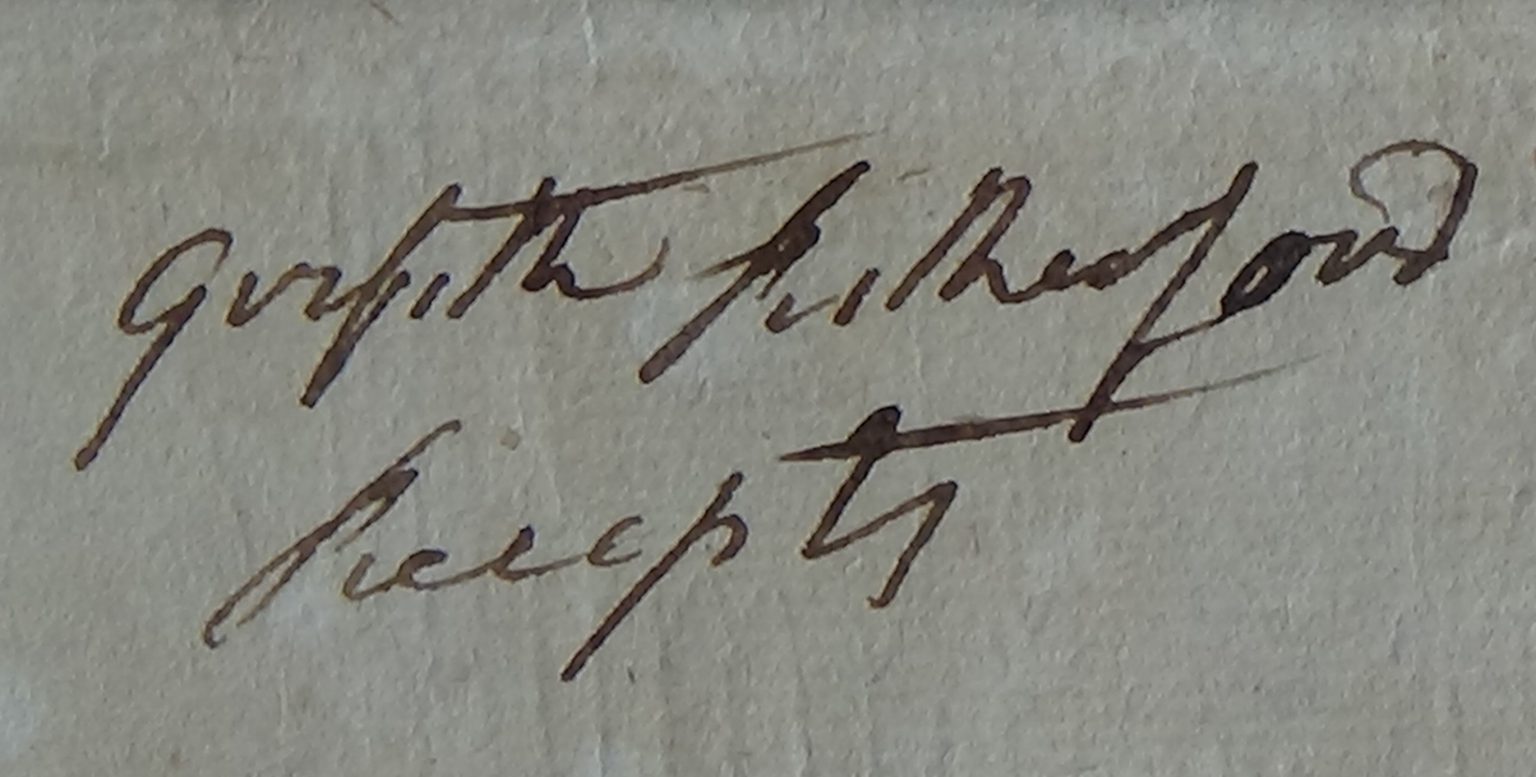 Grifith Rutherford
Receipts